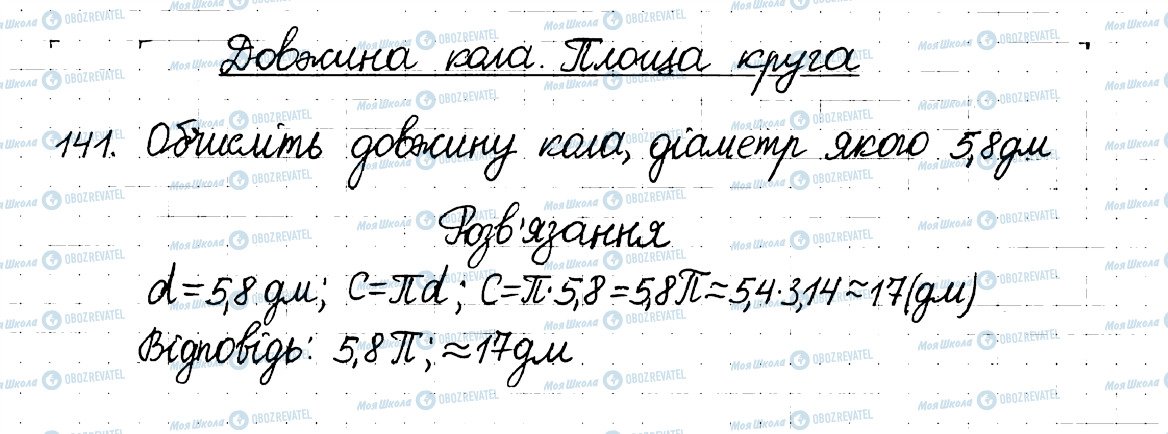 Довжина кола. Площа круга
141. Обчисліть довжину кола, діаметр якого 5,8дм
Розв'язання
d=5,8 дм; C=πd; C=π·5,8=5,8π≈5,4·3,14≈17(дм)
Відповідь: 5,8π; ≈17дм